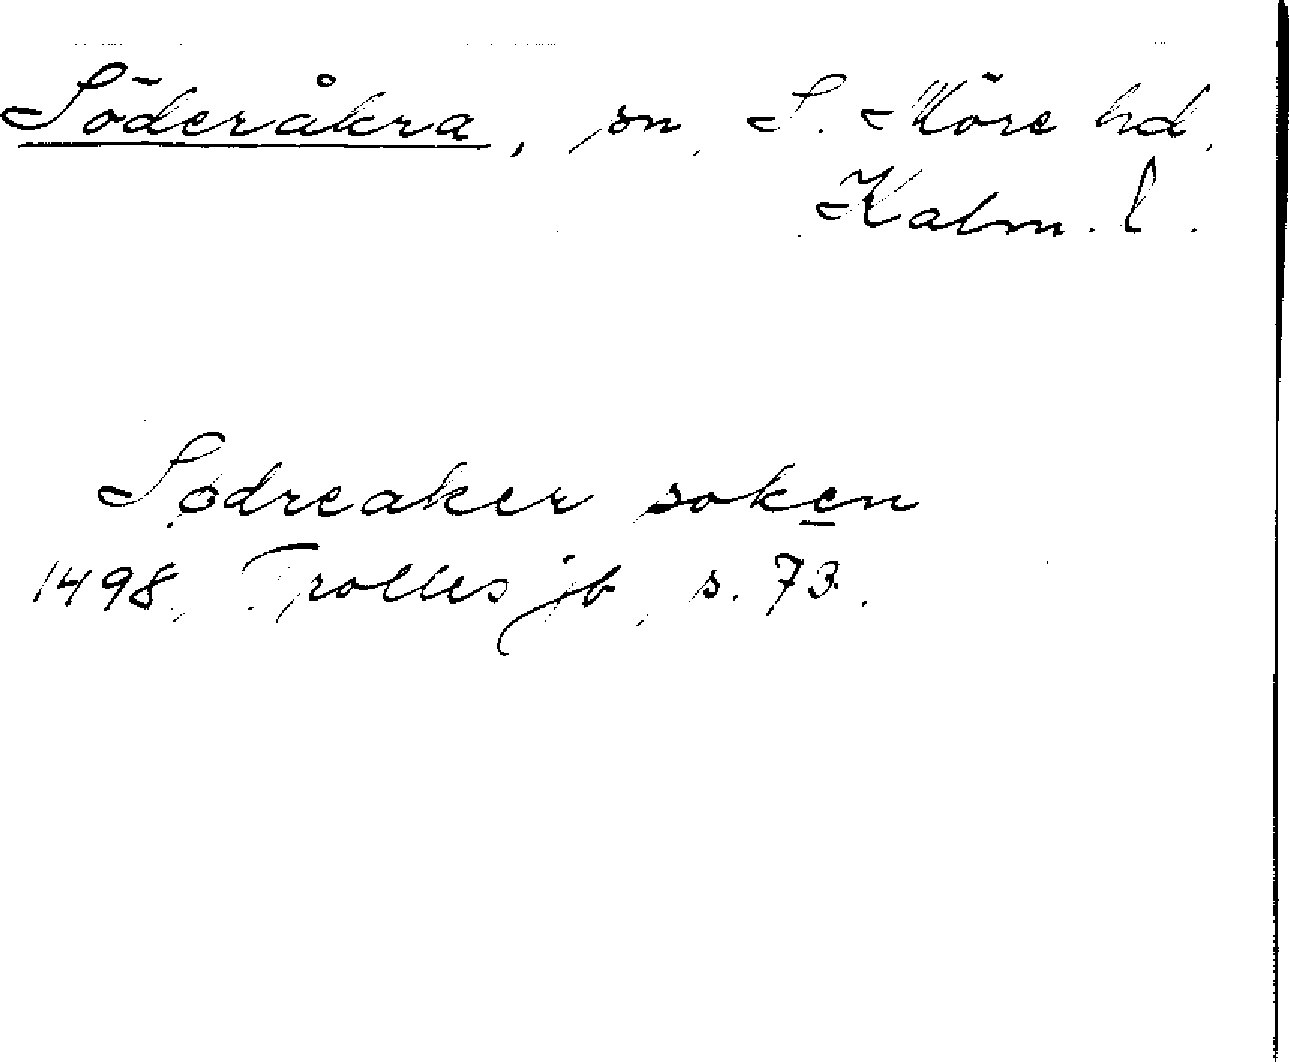 Söderåkra, sn, S. Möre hd,
Kalm. l.
Sødreaker soken
1498, Trolles jb, s. 73.